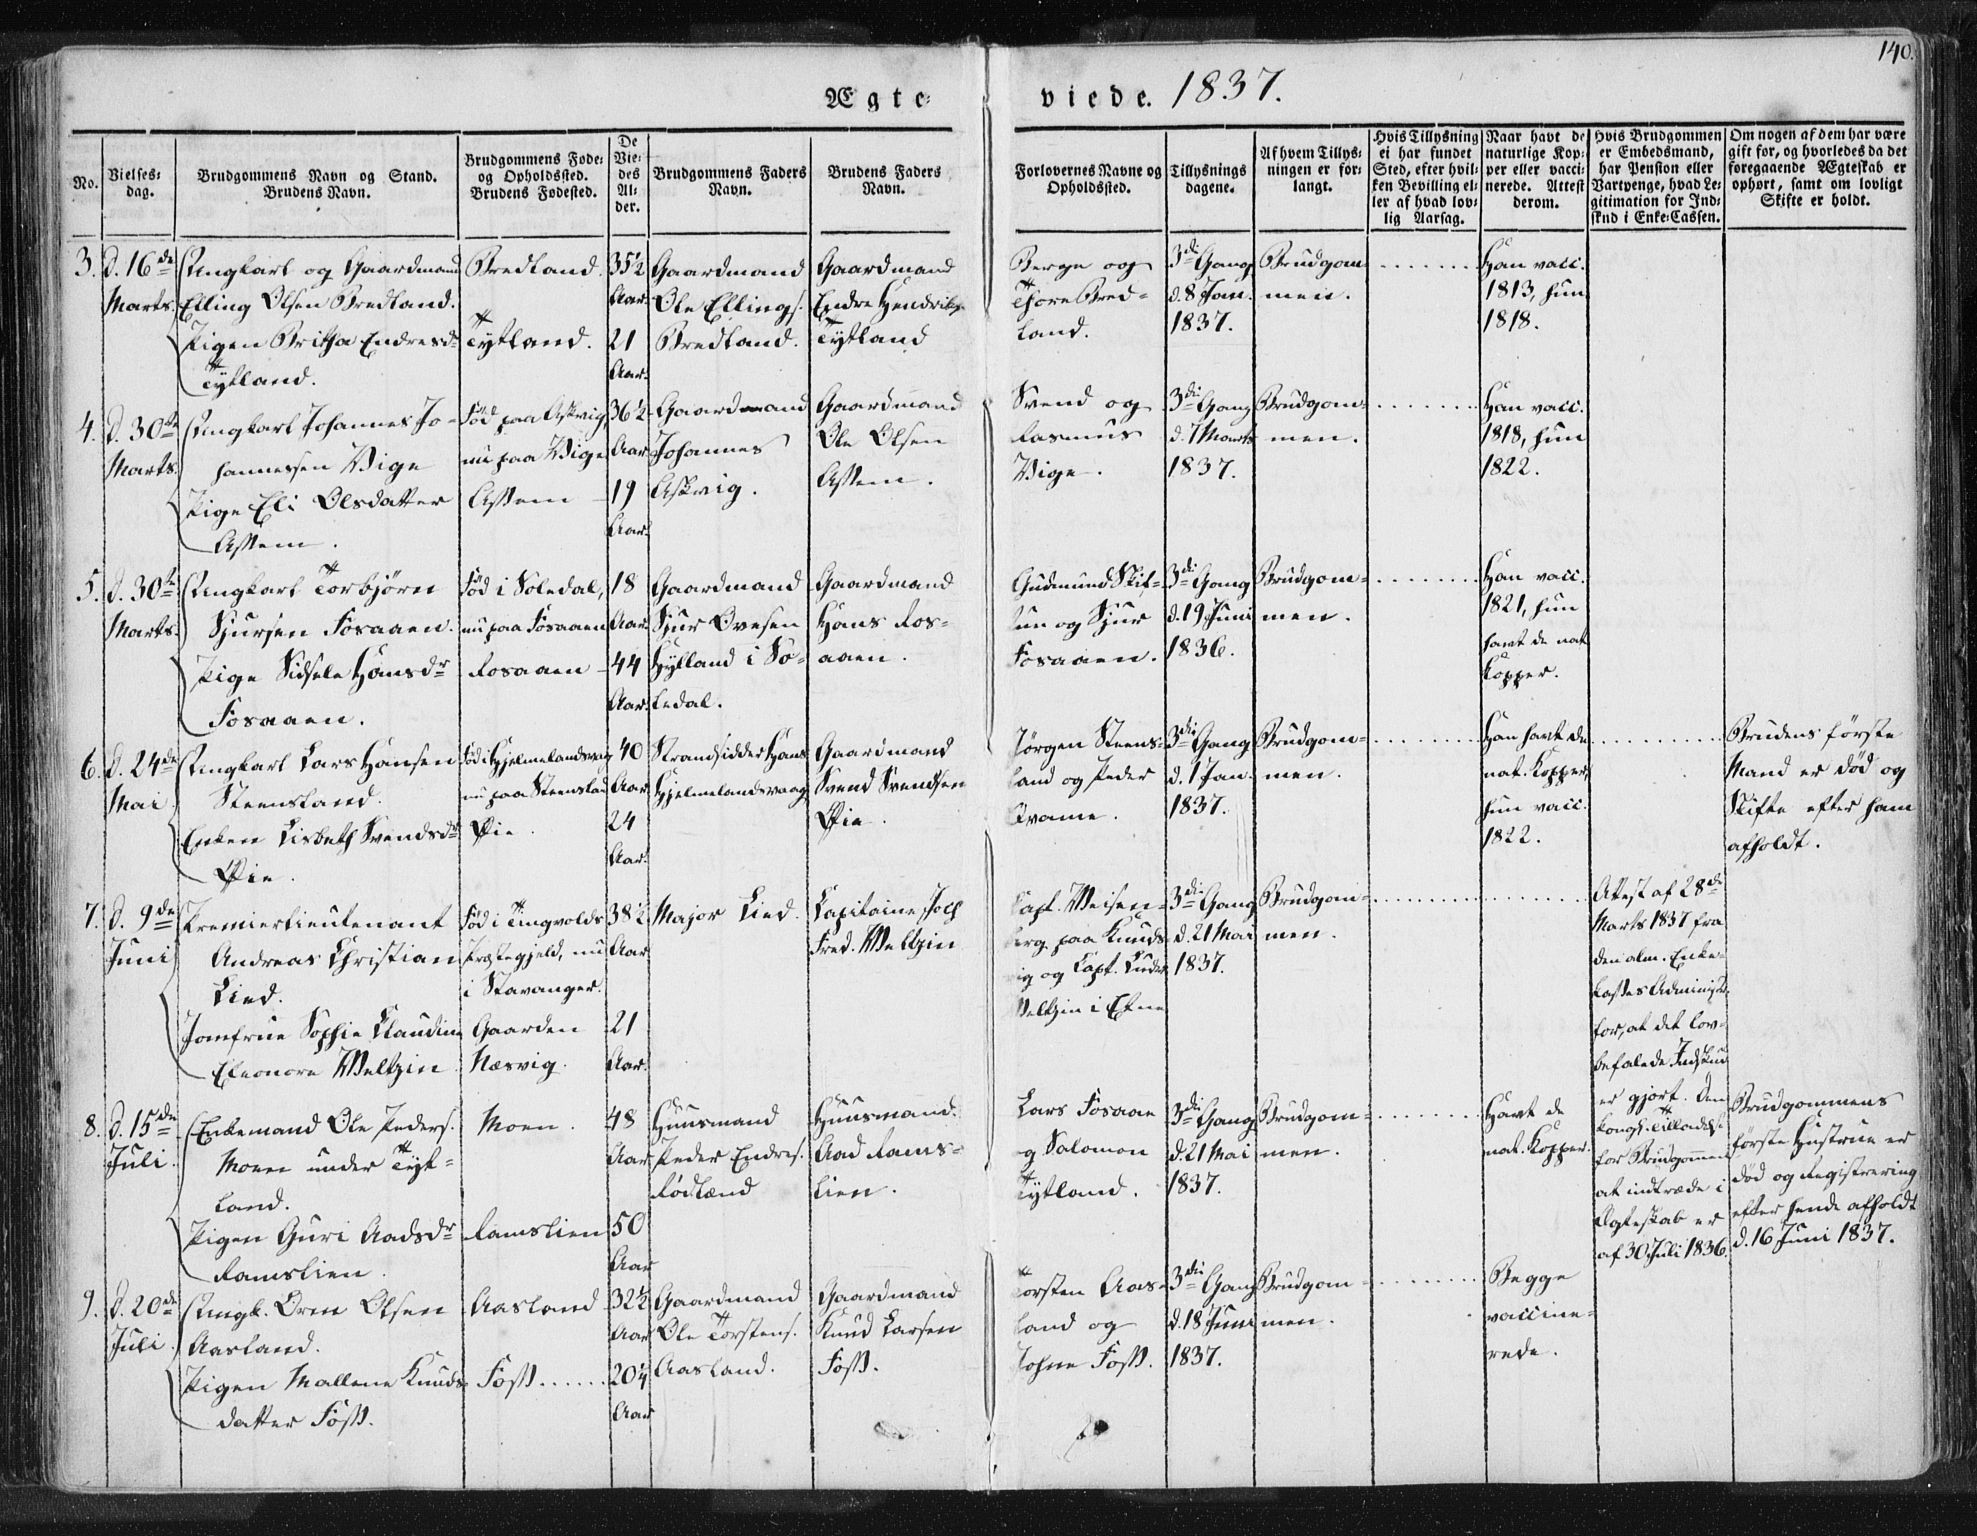 140.
Ægte-
viede. 1837.
No.
Vielses-
dag.
Brudgommens Navn og Stand.
Brudens Navn.
Brudgommens Føde-
og Opholdssted.
Brudens Fødested.
De
Vie-
des
Al-
der.
Brudgommens Faders
Navn.
Brudens Faders
Navn.
Forlovernes Navne og
Opholdssted.
Tillysnings
dagene.
Af hvem Tillys-
ningen er for-
langt.
Hvis Tillysning
ei har fundet
Sted, efter hvil-
ken Bevilling el-
ler af hvad lov-
lig Aarsag.
Naar havt de
naturlige Kop-
per eller vacci-
nerede. Attest
derom.
Hvis Brudgommen
er Embedsmand,
har Pension eller
Vartpenge, hvad Le-
gitimation for Ind-
skud i Enke-Cassen.
Om nogen af dem har være
gift før, og hvorledes da det
foregaaende Ægteskab er
ophørt, samt om lovligt
Skifte er holdt.
3.
d. 16de
Marts.
Ungkarl og Gaardmand
Elling Olsen Bredland.
Pigen Britha Endresdr
Tytland.
Bredland.
Tytland.
35½
Aar.
21
Aar.
Gaardmand
Ole Ellings.
Bredland.
Gaardmand
Endre Hendriks.
Tytland
Berge og
Thore Bred-
land.
3die Gang
d. 8 Jan.
1837.
Brudgom-
men.
Han vacc.
1813, hun
1818.
4.
d. 30te
Marts.
Ungkarl Johannes Jo-
hannessen Vige
Pige Eli Olsdatter
Assem.
Fød paa Askvig,
nu paa Vige
Assem
36½
Aar
19
Aar.
Gaardmand
Johannes
Askvig.
Gaardmand
Ole Olsen
Assem.
Svend og
Rasmus
Vige.
3die Gang
d. 7 Marts
1837.
Brudgom-
men.
Han vacc.
1818, hun
1822.
5.
d. 30te
Marts.
Ungkarl Torbjørn
Sjursen Fosaaen.
Pige Sidsele Hansdr
Fosaaen.
Fød i Soledal,
nu paa Fosaaen
Rosaaen
18
Aar.
44
Aar.
Gaardmand
Sjur Ovesen
Hylland i So-
ledal.
Gaardmand
Hans Ros-
aaen.
Gudmund Skif-
tun og Sjur
Fosaaen.
3die Gang
d. 19 Juni
1836.
Brudgom-
men.
Han vacc.
1821, hun
havt de nat.
Kopper.
6.
d. 24de
Mai
Ungkarl Lars Hansen
Steensland.
Enken Lisbeth Svendsdr
Øie.
Fød i Hjelmelandsvaag
nu paa Steensland
Øie.
40
Aar.
24
Aar.
Strandsidder Hans
Hjelmelandsvaag
Gaardmand
Svend Svendsen
Øie.
Jørgen Steens-
land og Peder
Qvame.
3die Gang
d. 1 Jan.
1837.
Brudgom-
men.
Han havt de
nat. Kopper,
hun vacc.
1822.
Brudens første
Mand er død og
Skifte efter ham
afholdt.
7.
d. 9de
Juni
Premierlieutenant
Andreas Christian
Lied.
Jomfrue Sophie Claudine
Eleonore Weltzin
Fød i Tingvolds
Præstegjeld, nu
i Stavanger.
Gaarden
Næsvig.
38½
Aar.
21
Aar.
Major Lied.
Capitaine Joch
Fred. Weltzin
Capt. Meisen-
berg paa Knuds-
vig og Capt. Luder
Weltzin i Etne
3die Gang
d. 21 Mai
1837.
Brudgom-
men.
Attest af 28de
Marts 1837 fra
den alm. Enke-
kasses Administ.
for, at det lov-
befalede Indskud
er gjort. Den
kongl. Tilladelse
for Brudgommen
at indtræde i
Ægteskab er
af 30 Juli 1836.
8.
d. 15de
Juli.
Enkemand Ole Peders.
Moen under Tyt-
land.
Pigen Guri Aadsdr
Ramslien.
Moen.
Ramslien
48
Aar
50
Aar
Huusmand
Peder Endres.
Rødland
Huusmand
Aad Rams-
lien.
Lars Fosaae
og Salomon
Tytland.
3die Gang
d. 21 Mai
1837.
Brudgom-
men.
Havt de
nat. Kopper.
Brudgommens
første Hustrue er
død og Registrering
efter hende afholdt
d. 16 Juni 1837.
9.
d. 20de
Juli.
Ungk. Orm Olsen
Aasland.
Pigen Mallene Knuds-
datter Foss.
Aasland
Foss......
32½
Aar
20¼
Aar
Gaardmand
Ole Torstens.
Aasland.
Gaardmand
Knud Larsen
Foss.
Torsten Aas-
land og
Johne Foss.
3die Gang
d. 18 Juni
1837.
Brudgom-
men.
Begge
vaccine-
rede.